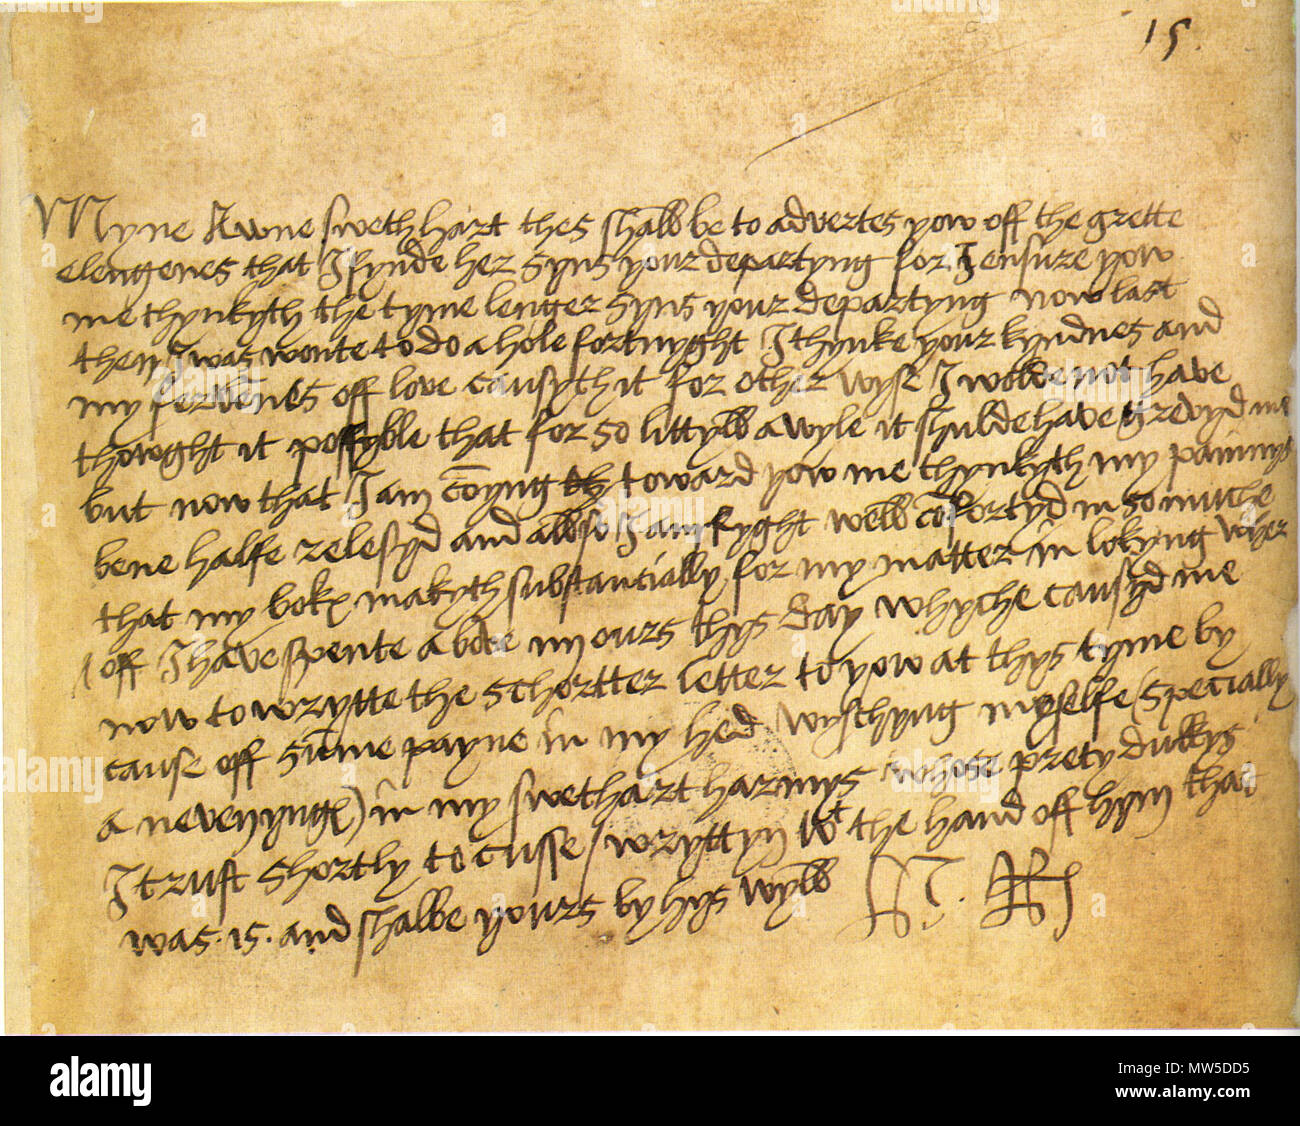 15.
Myne Awne swethhart thes shall be to advertes yow off the grette
elengenes that I fynde her syns your departyng for I ensure yow
me thynkyth the tyme lenger syns your departyng now last
then I was wonte to do a hole fortnyght I thynke your kyndnes and
my fervēnes off love causyth it for other wyse I wolde not have
thowght it possyble that for so littyll a wyle it shulde have grevyd me
but now that I am cōyng toward yow me thynkyth my painnys
bene halfe relesyd and allso I am ryght well cōfortyd in so muche
that my bok makyth substantially for my matter in lokyng wher
off I have spente above iiij ours thys day whyche causyd me
now to wrytte the schortter letter to yow at thys tyme by
cause off sūme payne in my hed wyschyng myselfe (specially
a nevenyng) in my swethart harmys whose prety dukkys
I trust shortly to cusse / wryttyn wt the hand off hym that
was .is. and shalbe yours by hys wyll H. Rx
alamy
alamy
Image ID: MW5DD5
www.alamy.com